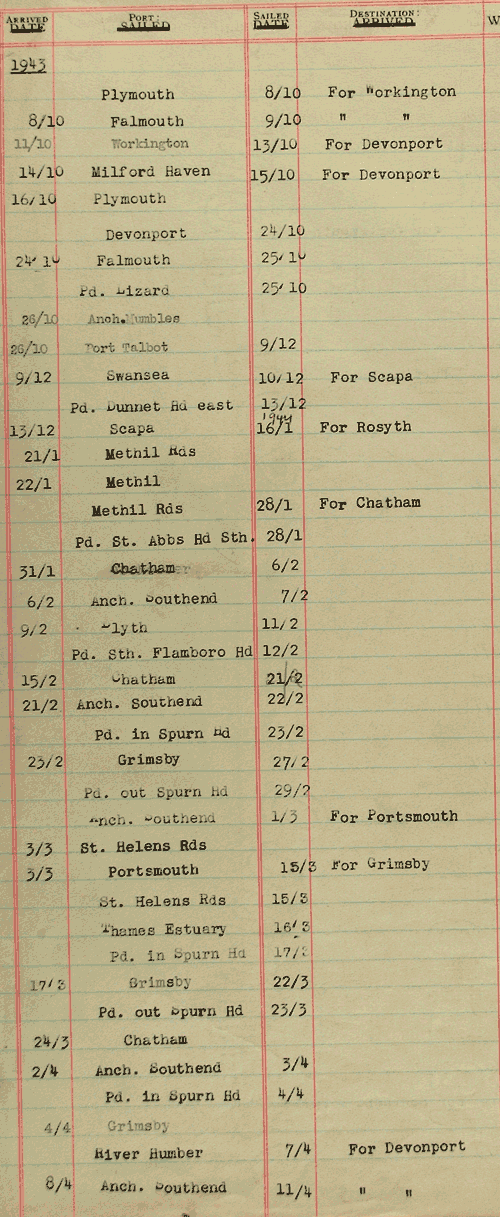 ARRIVED DATE PORT: SAILED SAILED DATE DESTINATION: ARRIVED W
1943
Plymouth 8/10 For Workington
8/10 Falmouth 9/10 " "
11/10 Workington 13/10 For Devonport
14/10 Milford Haven 15/10 For Devonport
16/10 Plymouth
Devonport 24/10
24/10 Falmouth 25/10
Pd. Lizard 25/10
26/10 Anch.Mumbles
26/10 Port Talbot 9/12
9/12 Swansea 10/12 For Scapa
Pd. Dunnet Hd east 13/12
1944
13/12 Scapa 16/1 For Rosyth
21/1 Methil Rds
22/1 Methil
Methil Rds 28/1 For Chatham
Pd. St. Abbs Hd Sth. 28/1
31/1 Chatham 6/2
6/2 Anch. Southend 7/2
9/2 Blyth 11/2
Pd. Sth. Flamboro Hd 12/2
15/2 Chatham 21/2
21/2 Anch. Southend 22/2
Pd. in Spurn Hd 23/2
23/2 Grimsby 27/2
Pd. out Spurn Hd 29/2
Anch. Southend 1/3 For Portsmouth
3/3 St. Helens Rds
3/3 Portsmouth 15/3 For Grimsby
St. Helens Rds 15/3
Thames Estuary 16/3
Pd. in Spurn Hd 17/3
17/3 Grimsby 22/3
Pd. out Spurn Hd 23/3
24/3 Chatham
2/4 Anch. Southend 3/4
Pd. in Spurn Hd 4/4
4/4 Grimsby
River Humber 7/4 For Devonport
8/4 Anch. Southend 11/4 " "